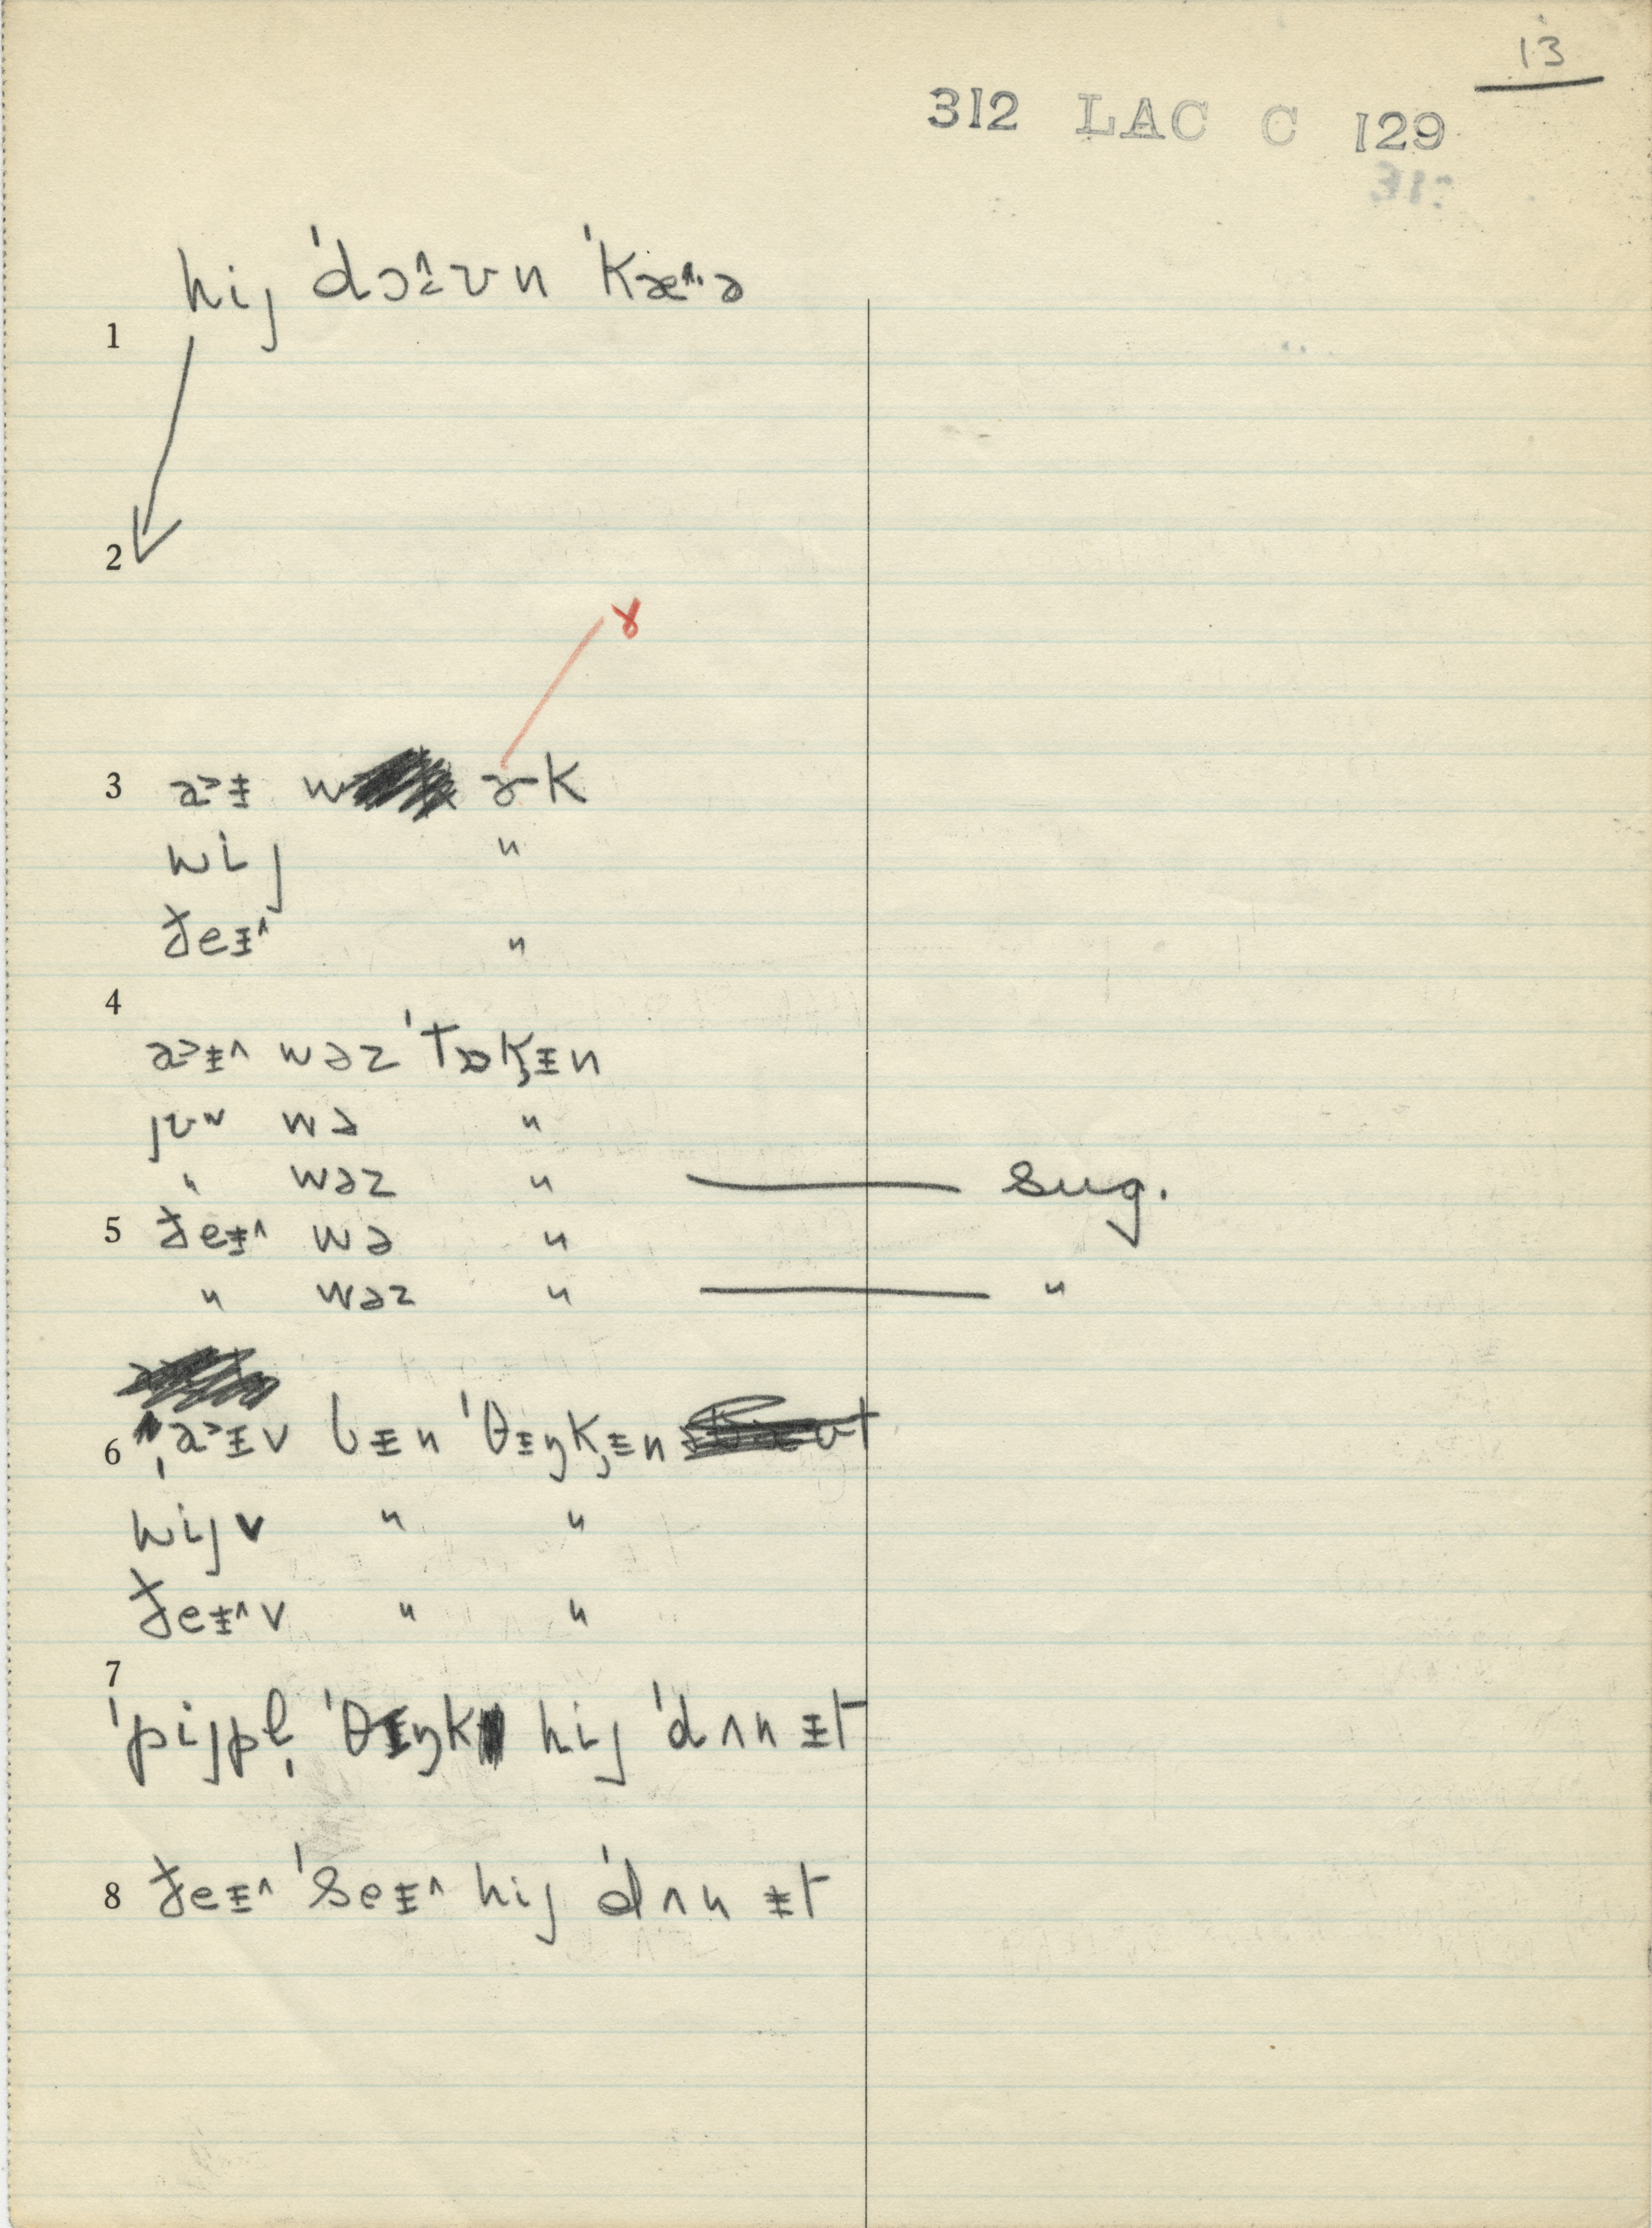 13
312 LAC C 129
hij ˈdɔ^ːʊn ˈkæ^·ə
1
2
ɤ
3 a>ᵻ w ɚk
wij "
ðeᵻ^ "
4
a>ᵻ^ wəz ˈtɔk̡ᵻn
jʊw wə "
" wəz " —— sug.
5 ðeᵻ^ wə "
" wəz " —— "
6 ˌa>ᵻv bᵻn ˈθᵻŋk̡ᵻn
wijv " "
ðeᵻ^v " "
7
ˈpijpl̩ ˈθᵻŋk hij ˈdʌn ᵻt
8 ðeᵻ^ ˈseᵻ^ hij ˈdʌn ᵻt